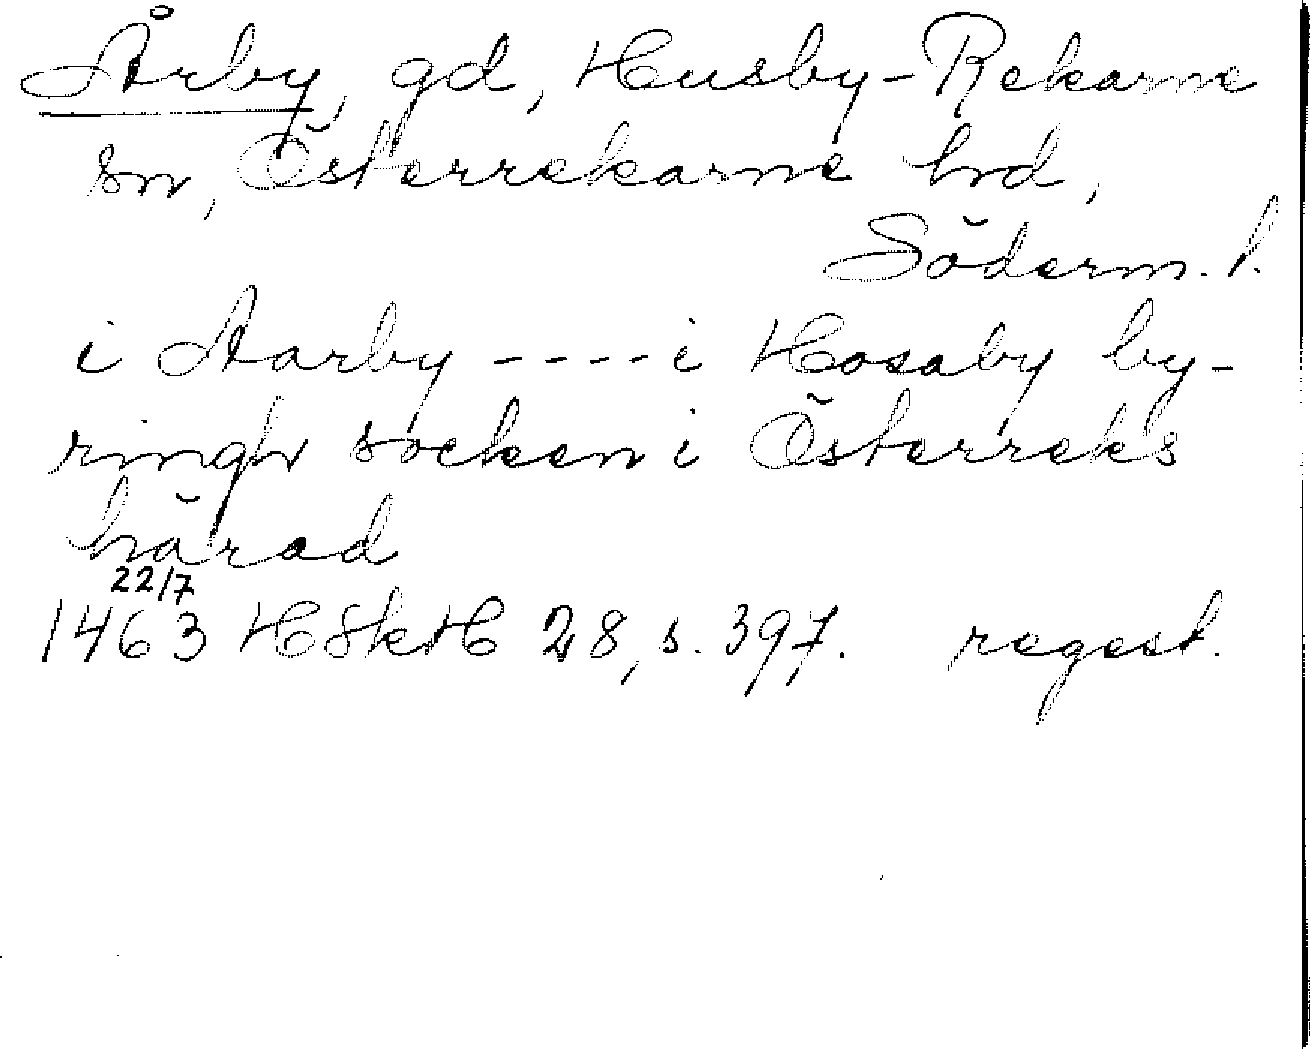 Årby, gd, Husby-Rekarne
sn, Österrekarne hd,
Söderm. l.
i Aarby ---- i Hosaby by-
ringh socken i Österreks
härad
22/7
1463 HSkH 28, s. 397. regest.